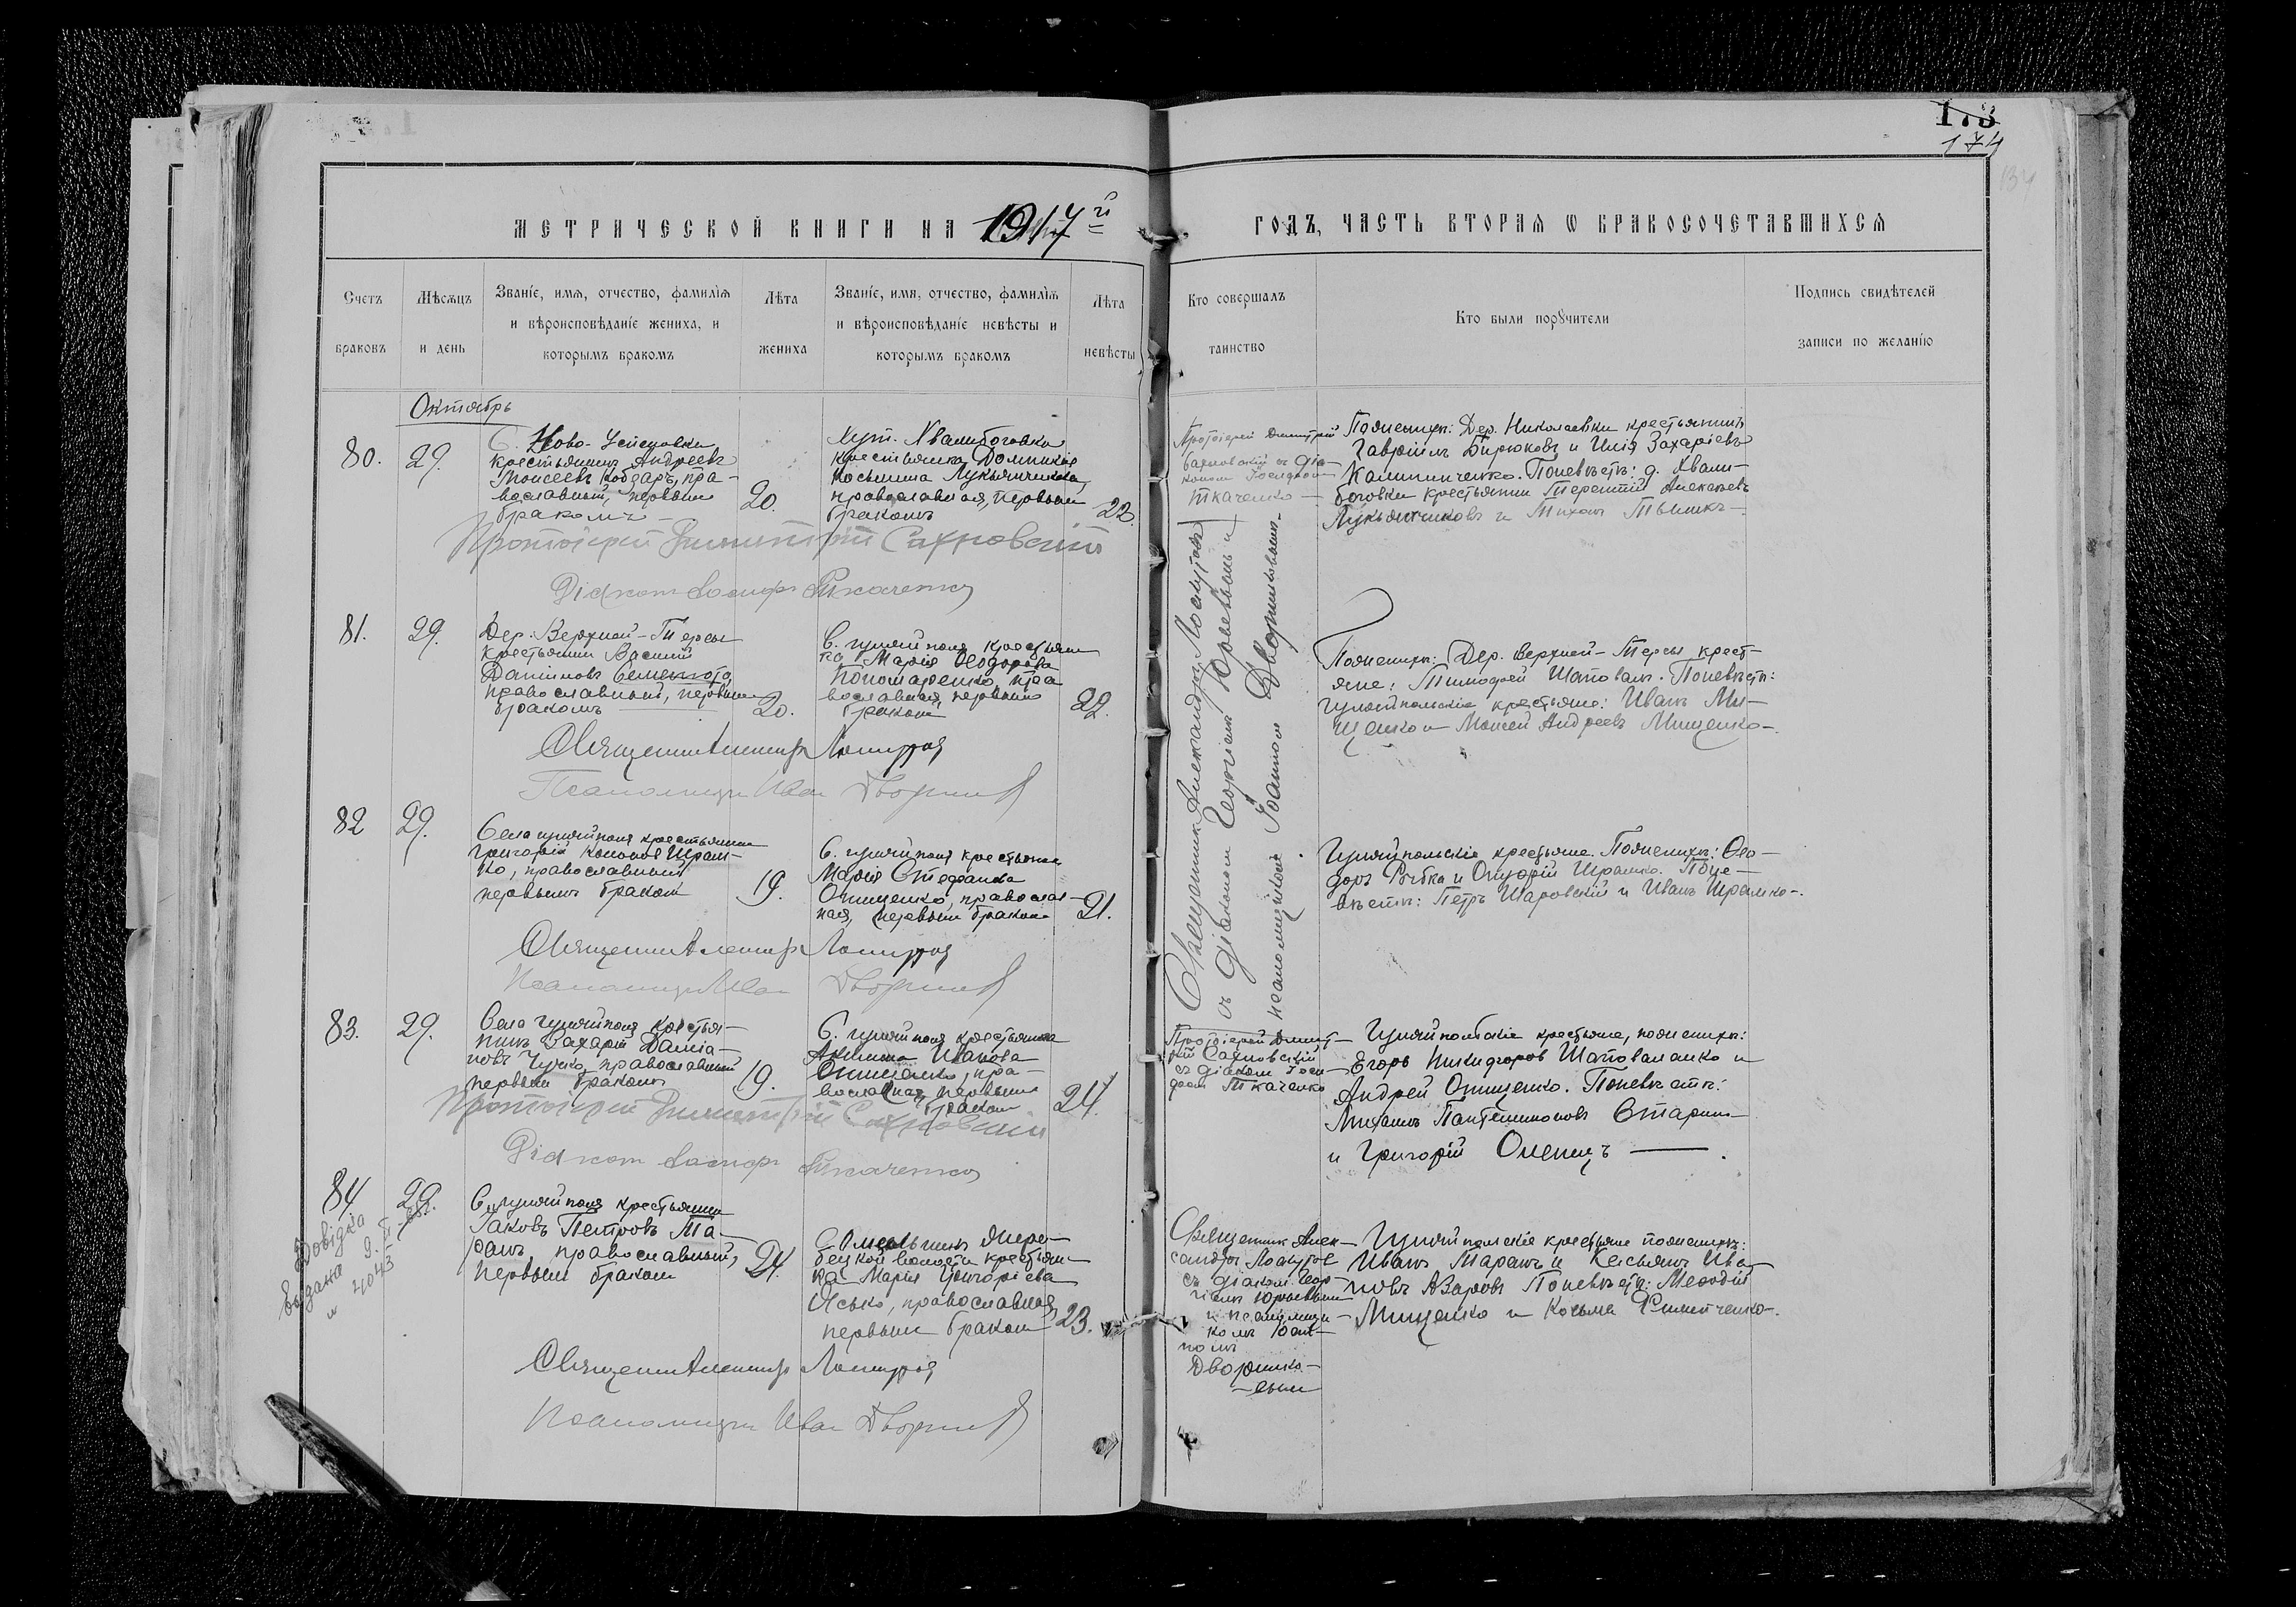 173
174
134
МЕТРИЧЕСКОЙ КНИГИ НА 1917й ГОДЪ, ЧАСТЬ ВТОРАЯ Ѡ БРАКОСОЧЕТАВШИХСЯ
Счетъ браковъ
Мѣсяцъ и день
Званіе, имя, отчество, фамилія
и вѣроисповѣданіе жениха, и
которымъ бракомъ
Лѣта
жениха
Званіе, имя, отчество, фамилія
и вѣроисповѣданіе невѣсты и
которымъ бракомъ
Лѣта
невѣсты
Кто совершалъ
таинство
Кто были поручители
Подпись свидѣтелей
записи по желанію
Октябрь
80.
29.
С. Ново-Успеновки
крестьянинъ Андреевъ
Моисеевъ Кобзарь, пра-
вославный, первымъ
бракомъ
20.
Хут. Хвалибоговки
крестьянка Домникія
Косьмина Лукьянчикова,
православная, первымъ
бракомъ
22.
Протоіерей Димитрій
Сахновскій съ діа-
кономъ Іосифомъ
Ткаченко
Поженихѣ: Дер. Николаевки крестьянинъ
Гавріилъ Бирюковъ и Илія Захаріевъ
Калиниченко. Поневѣстѣ: д. Хвали-
боговки крестьянин Терентій Алексѣевъ
Лукьянчиковъ и
Протоіерей Димитрій Сахновскій
Діаконъ Іосифъ Ткаченко
81.
29.
Дер. Верхней-Терсы
крестьянин Василій
Даниловъ Семенюта,
православный, первымъ
бракомъ
20.
С. Гуляйполя крестьян
ка Марія Ѳеодорова
Пономаренко, пра
вославная, первымъ
бракомъ
22.
Священникъ Александръ Лоскутовъ
съ діакономъ Георгіемъ Юрьевымъ и
псаломщикомъ Іоанномъ Дворниковымъ.
Поженихѣ: Дер. Верхней-Терсы крест-
яне: Тимофей Шаповалъ. Поневѣстѣ:
Гуляйпольскіе крестьяне: Иванъ Ми-
щенко и Моисей Андреевъ Мищенко.
Священникъ Александръ Лоскутовъ
Псаломщикъ Иван Дворников
82
29.
Села Гуляйполя крестьянин
Григорій Кононов Шрам-
ко, православный
первымъ бракомъ
19.
С. Гуляйполя крестьянка
Марія Стефанова
Онищенко, православ-
ная, первымъ бракомъ
21.
Гуляйпольскіе крестьяне. Поженихѣ: Ѳео-
доръ Рыбка и Шрамко. Поне-
вѣстѣ: Петръ Шаровскій и Иванъ Шрамко.
Священникъ Александръ Лоскутовъ
Псаломщикъ Иван Дворников
83.
29.
Села Гуляйполя крестья-
нинъ Захарій Даміа-
новъ Чучко, православный
первымъ бракомъ
19.
С. Гуляйполя крестьянка
Акилина Иванова
Онищенко, пра-
вославная, первымъ
бракомъ
24.
Протоіерей Димит-
рій Сахновскій
съ діаконом Іоси-
фом Ткаченко
Гуляйпольскіе крестьяне, поженихѣ:
Егоръ Никифоров Шаповаленко и
Андрей Онищенко. Поневѣстѣ:
Михаилъ Пантелимоновъ
и Григорій
Протоіерей Димитрій Сахновскій
Діаконъ Іосифъ Ткаченко
84
29.
С. Гуляйполя крестьянин
Іаковъ Петровъ Та-
ранъ, православный,
первымъ бракомъ
24.
крестьян-
ка Марія Григоріева
Ясько, православная,
первымъ бракомъ
23.
Священник Алек-
сандръ Лоскутов
съ діаконом Геор-
гіемъ Юрьевымъ
и псаломщи-
комъ Іоан-
номъ
Дворнико-
вымъ
Гуляйпольскіе крестьяне поженихѣ:
Иванъ Таранъ и Касьянъ Ива-
новъ Азаровъ Поневѣстѣ: Меѳодій
Мищенко и Козьма
Довідка
видана
9.
№ 4043
Священникъ Александръ Лоскутовъ
Псаломщикъ Иван Дворников